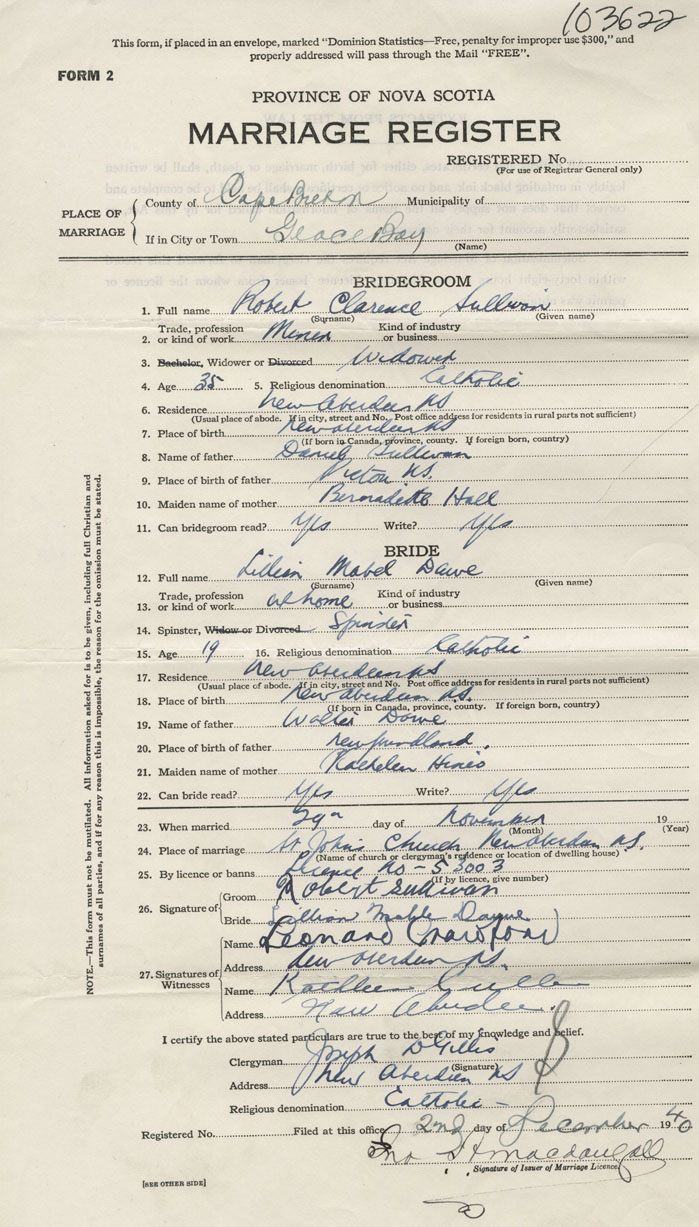 103622
This form, if placed in an envelope, marked "Dominion Statistics—Free, penalty for improper use $300," and
properly addressed will pass through the Mail "FREE".
FORM 2
PROVINCE OF NOVA SCOTIA
MARRIAGE REGISTER
REGISTERED No.
(For use of Registrar General only)
PLACE OF MARRIAGE
County of Cape Breton Municipality of
If in City or Town Glace Bay
(Name)
BRIDEGROOM
1. Full name Robert Clarence Sullivan
(Surname) (Given name)
2. Trade, profession or kind of work Miner Kind of industry or business
3. Bachelor, Widower or Divorced Widower
4. Age 35 5. Religious denomination Catholic
6. Residence New Aberdeen NS
(Usual place of abode. If in city, street and No. Post office address for residents in rural parts not sufficient)
7. Place of birth New Aberdeen NS
(If born in Canada, province, county. If foreign born, country)
8. Name of father Daniel Sullivan
9. Place of birth of father Pictou N.S.
10. Maiden name of mother Bernadette Hall
11. Can bridegroom read? Yes Write? Yes
BRIDE
12. Full name Lillian Mabel Dawe
(Surname) (Given name)
13. Trade, profession or kind of work at home Kind of industry or business
14. Spinster, Widow or Divorced Spinster
15. Age 19 16. Religious denomination Catholic
17. Residence New Aberdeen NS
(Usual place of abode. If in city, street and No. Post office address for residents in rural parts not sufficient)
18. Place of birth New Aberdeen N.S.
(If born in Canada, province, county. If foreign born, country)
19. Name of father Walter Dawe
20. Place of birth of father Newfoundland.
21. Maiden name of mother Kathleen Hines
22. Can bride read? Yes Write? Yes
23. When married 29th day of November 19
(Month) (Year)
24. Place of marriage St Johns Church New Aberdeen N.S.
(Name of church or clergyman's residence or location of dwelling house)
25. By licence or banns Licence No - 53003
(If by licence, give number)
26. Signature of
Groom Robert Sullivan
Bride Lillian Mable Dawe
27. Signatures of Witnesses
Name Leonard Crawford
Address New Aberdeen NS.
Name Kathleen
Address New Aberdeen.
I certify the above stated particulars are true to the best of my knowledge and belief.
Clergyman Joseph D Gillis
(Signature)
Address New Aberdeen NS
Religious denomination Catholic -
Registered No. Filed at this office 2nd day of December 1940
Jno MacDougall
Signature of Issuer of Marriage Licence
[SEE OTHER SIDE]
NOTE.—This form must not be mutilated. All information asked for is to be given, including full Christian and
surnames of all parties, and if for any reason this is impossible, the reason for the omission must be stated.